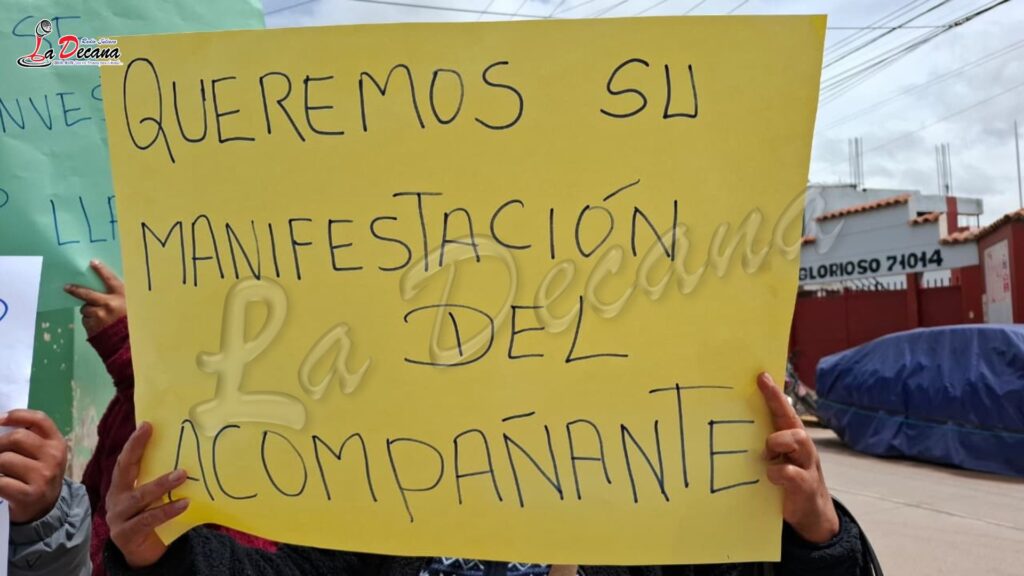 La Decana
QUEREMOS SU
MANIFESTACIÓN
DEL
ACOMPAÑANTE
La Decana
GLORIOSO 71014